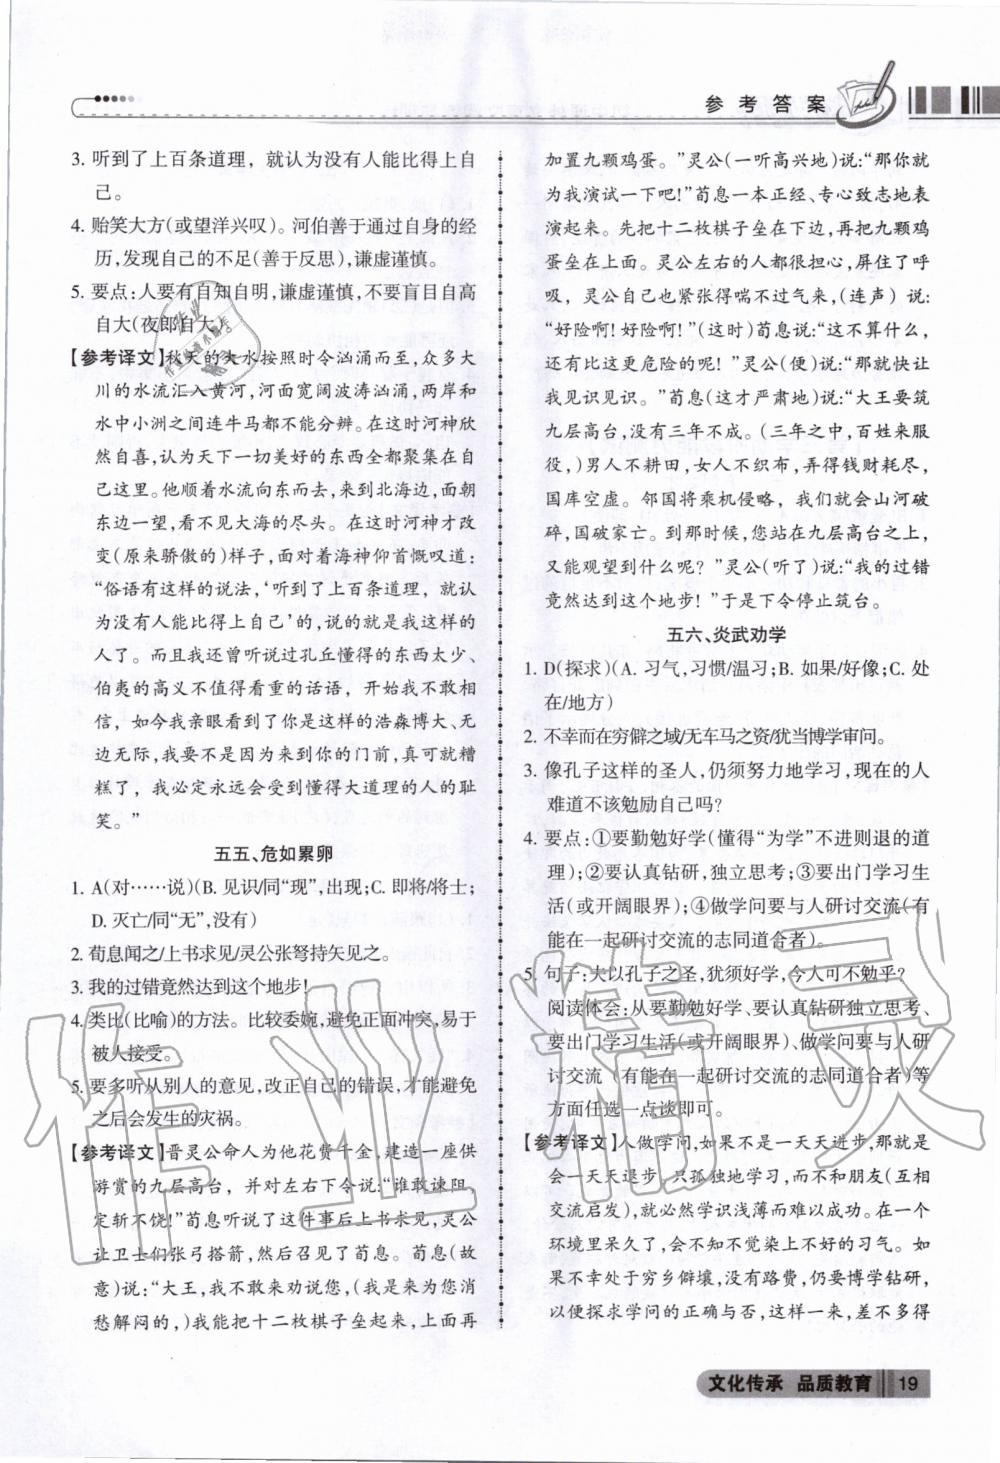 参考答案
3. 听到了上百条道理，就认为没有人能比得上自
己。
4. 贻笑大方(或望洋兴叹)。河伯善于通过自身的经
历,发现自己的不足(善于反思),谦虚谨慎。
5. 要点:人要有自知自明,谦虚谨慎,不要盲目自高
自大(夜郎自大)。
【参考译文】秋天的大水按照时令汹涌而至,众多大
川的水流汇入黄河,河面宽阔波涛汹涌,两岸和
水中小洲之间连牛马都不能分辨。在这时河神欣
然自喜,认为天下一切美好的东西全都聚集在自
己这里。他顺着水流向东而去,来到北海边,面朝
东边一望,看不见大海的尽头。在这时河神才改
变(原来骄傲的)样子,面对着海神仰首慨叹道:
“俗语有这样的说法,‘听到了上百条道理，就认
为没有人能比得上自己’的,说的就是我这样的
人了。而且我还曾听说过孔丘懂得的东西太少、
伯夷的高义不值得看重的话语，开始我不敢相
信，如今我亲眼看到了你是这样的浩淼博大、无
边无际,我要不是来到你的门前,真可就糟
糕了，我必定永远会受到懂得大道理的人的耻
笑。”
五五、危如累卵
1. A(对……说)(B. 见识/同“现”,出现;C. 即将/将士;
D. 灭亡/同“无”,没有)
2. 荀息闻之/上书求见/灵公张弩持矢见之。
3. 我的过错竟然达到这个地步!
4. 类比(比喻)的方法。比较委婉,避免正面冲突,易于
被人接受。
5. 要多听从别人的意见,改正自己的错误,才能避免
之后会发生的灾祸。
【参考译文】晋灵公命人为他花费千金,建造一座供
游赏的九层高台，并对左右下令说:“谁敢谏阻,
定斩不饶!”荀息听说了这件事后上书求见,灵公
让卫士们张弓搭箭,然后召见了荀息。荀息(故
意)说:“大王,我不敢来劝说您,(我是来为您消
愁解闷的,)我能把十二枚棋子垒起来,上面再
加置九颗鸡蛋。”灵公(一听高兴地)说:“那你就
为我演试一下吧!”荀息一本正经、专心致志地表
演起来。先把十二枚棋子垒在下边,再把九颗鸡
蛋垒在上面。灵公左右的人都很担心,屏住了呼
吸，灵公自己也紧张得喘不过气来,(连声）说:
“好险啊! 好险啊!”(这时)荀息说:“这不算什么,
还有比这更危险的呢! ”灵公(便)说:“那就快让
我见识见识。”荀息(这才严肃地)说:“大王要筑
九层高台,没有三年不成。(三年之中,百姓来服
役,)男人不耕田,女人不织布,弄得钱财耗尽,
国库空虚。邻国将乘机侵略，我们就会山河破
碎,国破家亡。到那时候,您站在九层高台之上,
又能观望到什么呢? ”灵公(听了)说:“我的过错
竟然达到这个地步! ”于是下令停止筑台。
五六、炎武劝学
1. D(探求)(A. 习气,习惯/温习;B. 如果/好像;C. 处
在/地方)
2. 不幸而在穷僻之域/无车马之资/犹当博学审问。
3. 像孔子这样的圣人,仍须努力地学习,现在的人
难道不该勉励自己吗?
4. 要点:①要勤勉好学(懂得“为学”不进则退的道
理);②要认真钻研,独立思考;③要出门学习生
活(或开阔眼界);④做学问要与人研讨交流(有
能在一起研讨交流的志同道合者)。
5. 句子:夫以孔子之圣,犹须好学,今人可不勉乎?
阅读体会:从要勤勉好学、要认真钻研独立思考、
要出门学习生活(或开阔眼界)、做学问要与人研
讨交流（有能在一起研讨交流的志同道合者）等
方面任选一点谈即可。
【参考译文】人做学问,如果不是一天天进步,那就是
会一天天退步。只孤独地学习,而不和朋友(互相
交流启发),就必然学识浅薄而难以成功。在一个
环境里呆久了,会不知不觉染上不好的习气。如
果不幸处于穷乡僻壤,没有路费,仍要博学钻研,
以便探求学问的正确与否,这样一来,差不多得
作业精灵
文化传承 品质教育 19